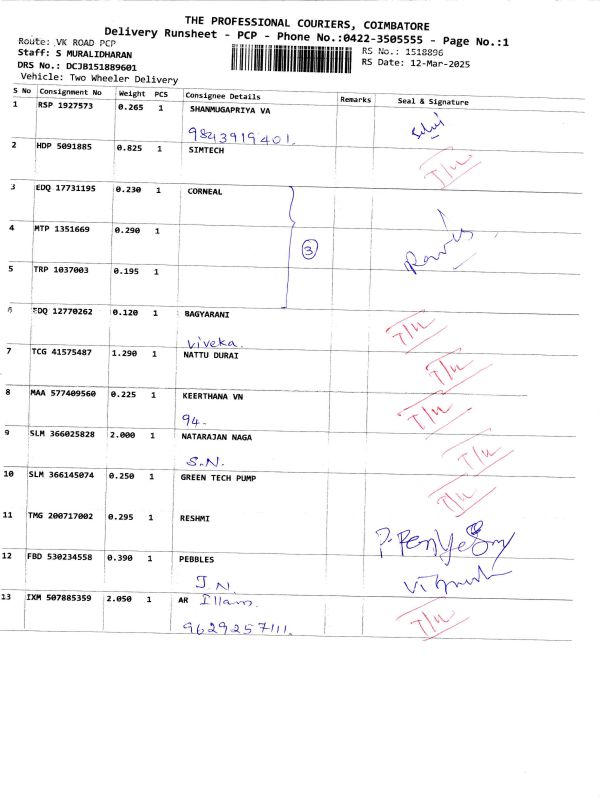 THE PROFESSIONAL COURIERS, COIMBATORE
Delivery Runsheet - PCP - Phone No.:0422-3505555 - Page No.:1
Route: VK ROAD PCP
Staff: S MURALIDHARAN
DRS No.: DCJB151889601
Vehicle: Two Wheeler Delivery
RS No.: 1518896
RS Date: 12-Mar-2025
S No Consignment No Weight PCS Consignee Details Remarks Seal & Signature
1 RSP 1927573 0.265 1 SHANMUGAPRIYA VA
9843919401. Selvi
2 HDP 5091885 0.825 1 SIMTECH T/u
3 EDQ 17731195 0.230 1 CORNEAL
4 MTP 1351669 0.290 1
3
5 TRP 1037003 0.195 1
6 EDQ 12770262 0.120 1 BAGYARANI T/u
Viveka.
7 TCG 41575487 1.290 1 NATTU DURAI T/u
8 MAA 577409560 0.225 1 KEERTHANA VN T/u
94.
9 SLM 366025828 2.000 1 NATARAJAN NAGA T/u
S.N.
10 SLM 366145074 0.250 1 GREEN TECH PUMP T/u
11 TMG 200717002 0.295 1 RESHMI
12 FBD 530234558 0.390 1 PEBBLES
J N.
13 IXM 507885359 2.050 1 AR Illam. T/u
9629257111.